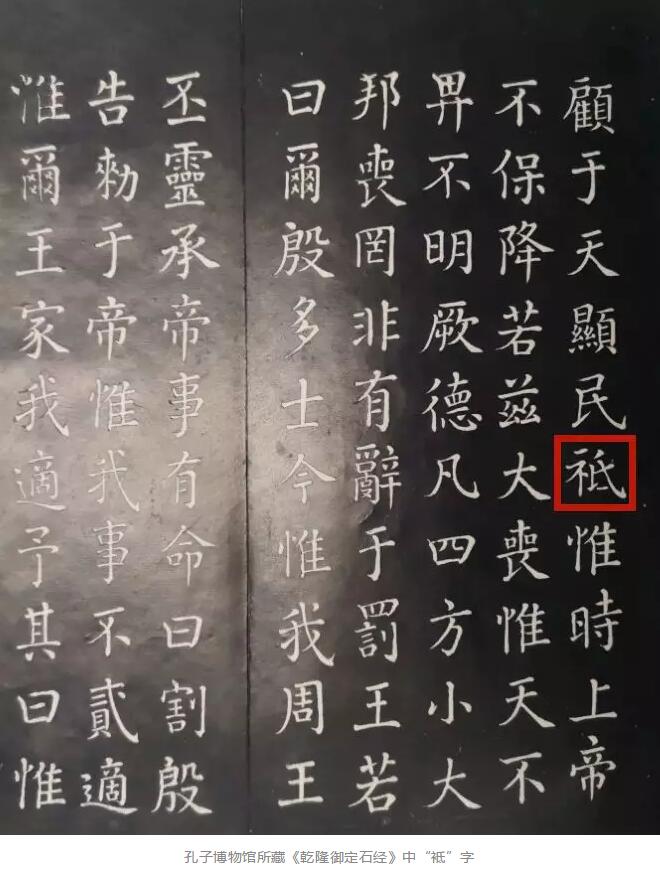 顧于天顯民祗惟時上帝
不保降若茲大喪惟天不
畀不明厥德凡四方小大
邦喪罔非有辭于罰王若
曰爾殷多士今惟我周王
丕靈承帝事有命曰割殷
告勑于帝惟我事不貳適
惟爾王家我適予其曰惟
孔子博物馆所藏《乾隆御定石经》中“祗”字